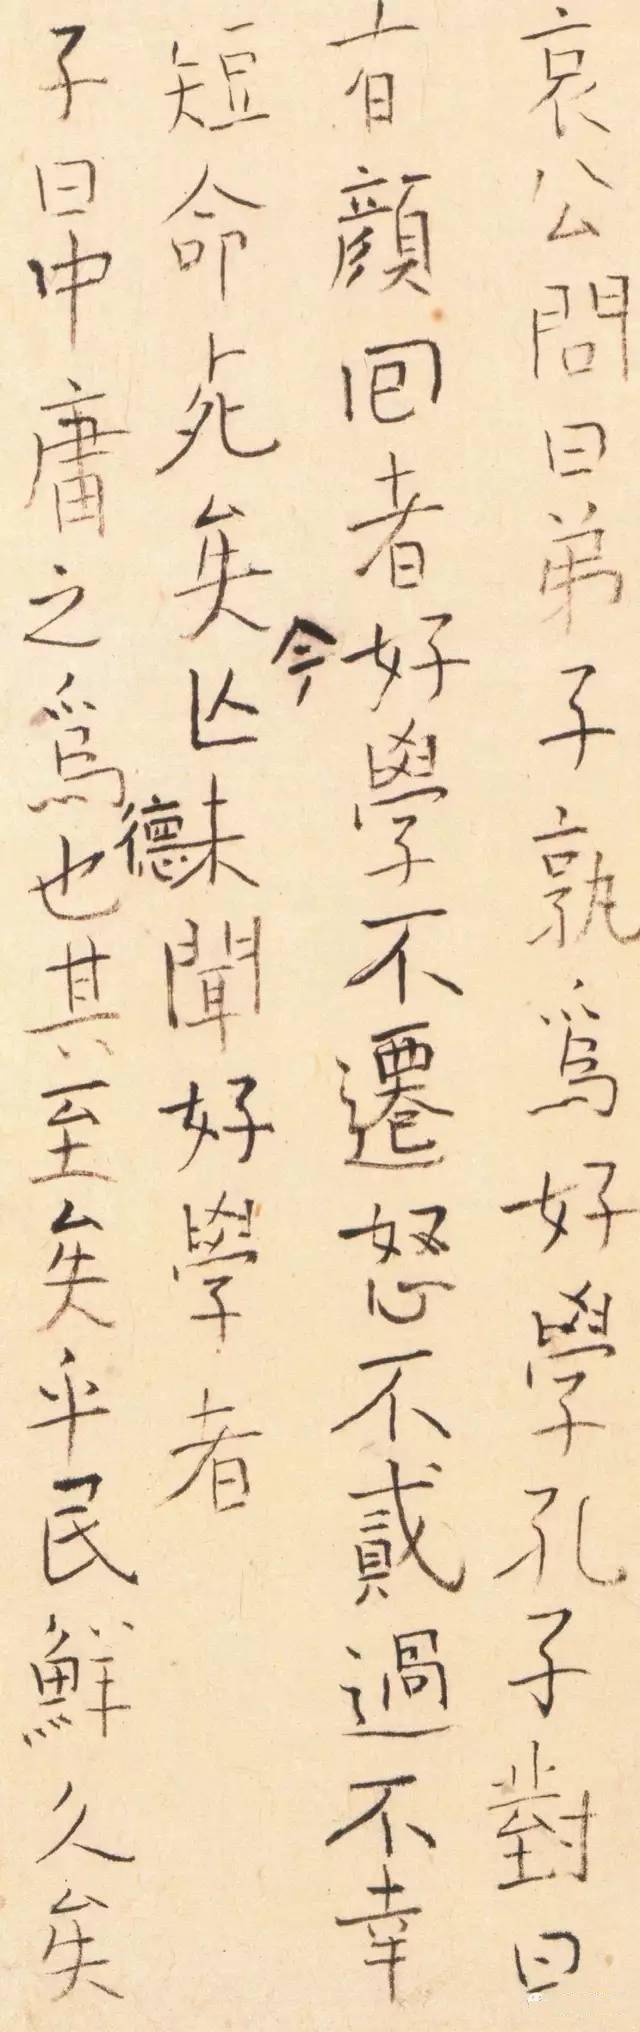 哀公問曰弟子孰爲好學孔子對曰
有顏回者好學不遷怒不貳過不幸
短命死矣今亾未聞好學者
子曰中庸之爲德也其至矣乎民鮮久矣